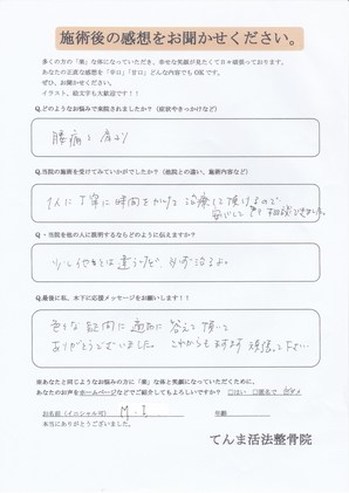 施術後の感想をお聞かせください。
多くの方の「楽」な体になっていただき、幸せな笑顔が見たくて日々頑張っております。
あなたの正直な感想を「辛口」「甘口」どんな内容でもOKです。
ぜひ、お聞かせください。
イラスト、絵文字も大歓迎です！！
Q.どのようなお悩みで来院されましたか？（症状やきっかけなど）
腰痛と肩こり
Q.当院の施術を受けてみていかがでしたか？（他院との違い、施術内容など）
1人に丁寧に時間をかけて治療して頂けるので
安心して 相談できました。
Q・当院を他の人に説明するならどのように伝えますか？
少し他とは違うけど、必ず治るよ。
Q.最後に私、木下に応援メッセージをお願いします！！
色々な疑問に適切に答えて頂いて
ありがとうございました。これからもますます頑張って下さい
※あなたと同じようなお悩みの方に「楽」な体と笑顔になっていただくために、
あなたのお声をホームページなどでご紹介してもよろしいですか？ □はい □匿名で
お名前（イニシャル可） 年齢
本当にありがとうございました。
てんま活法整骨院